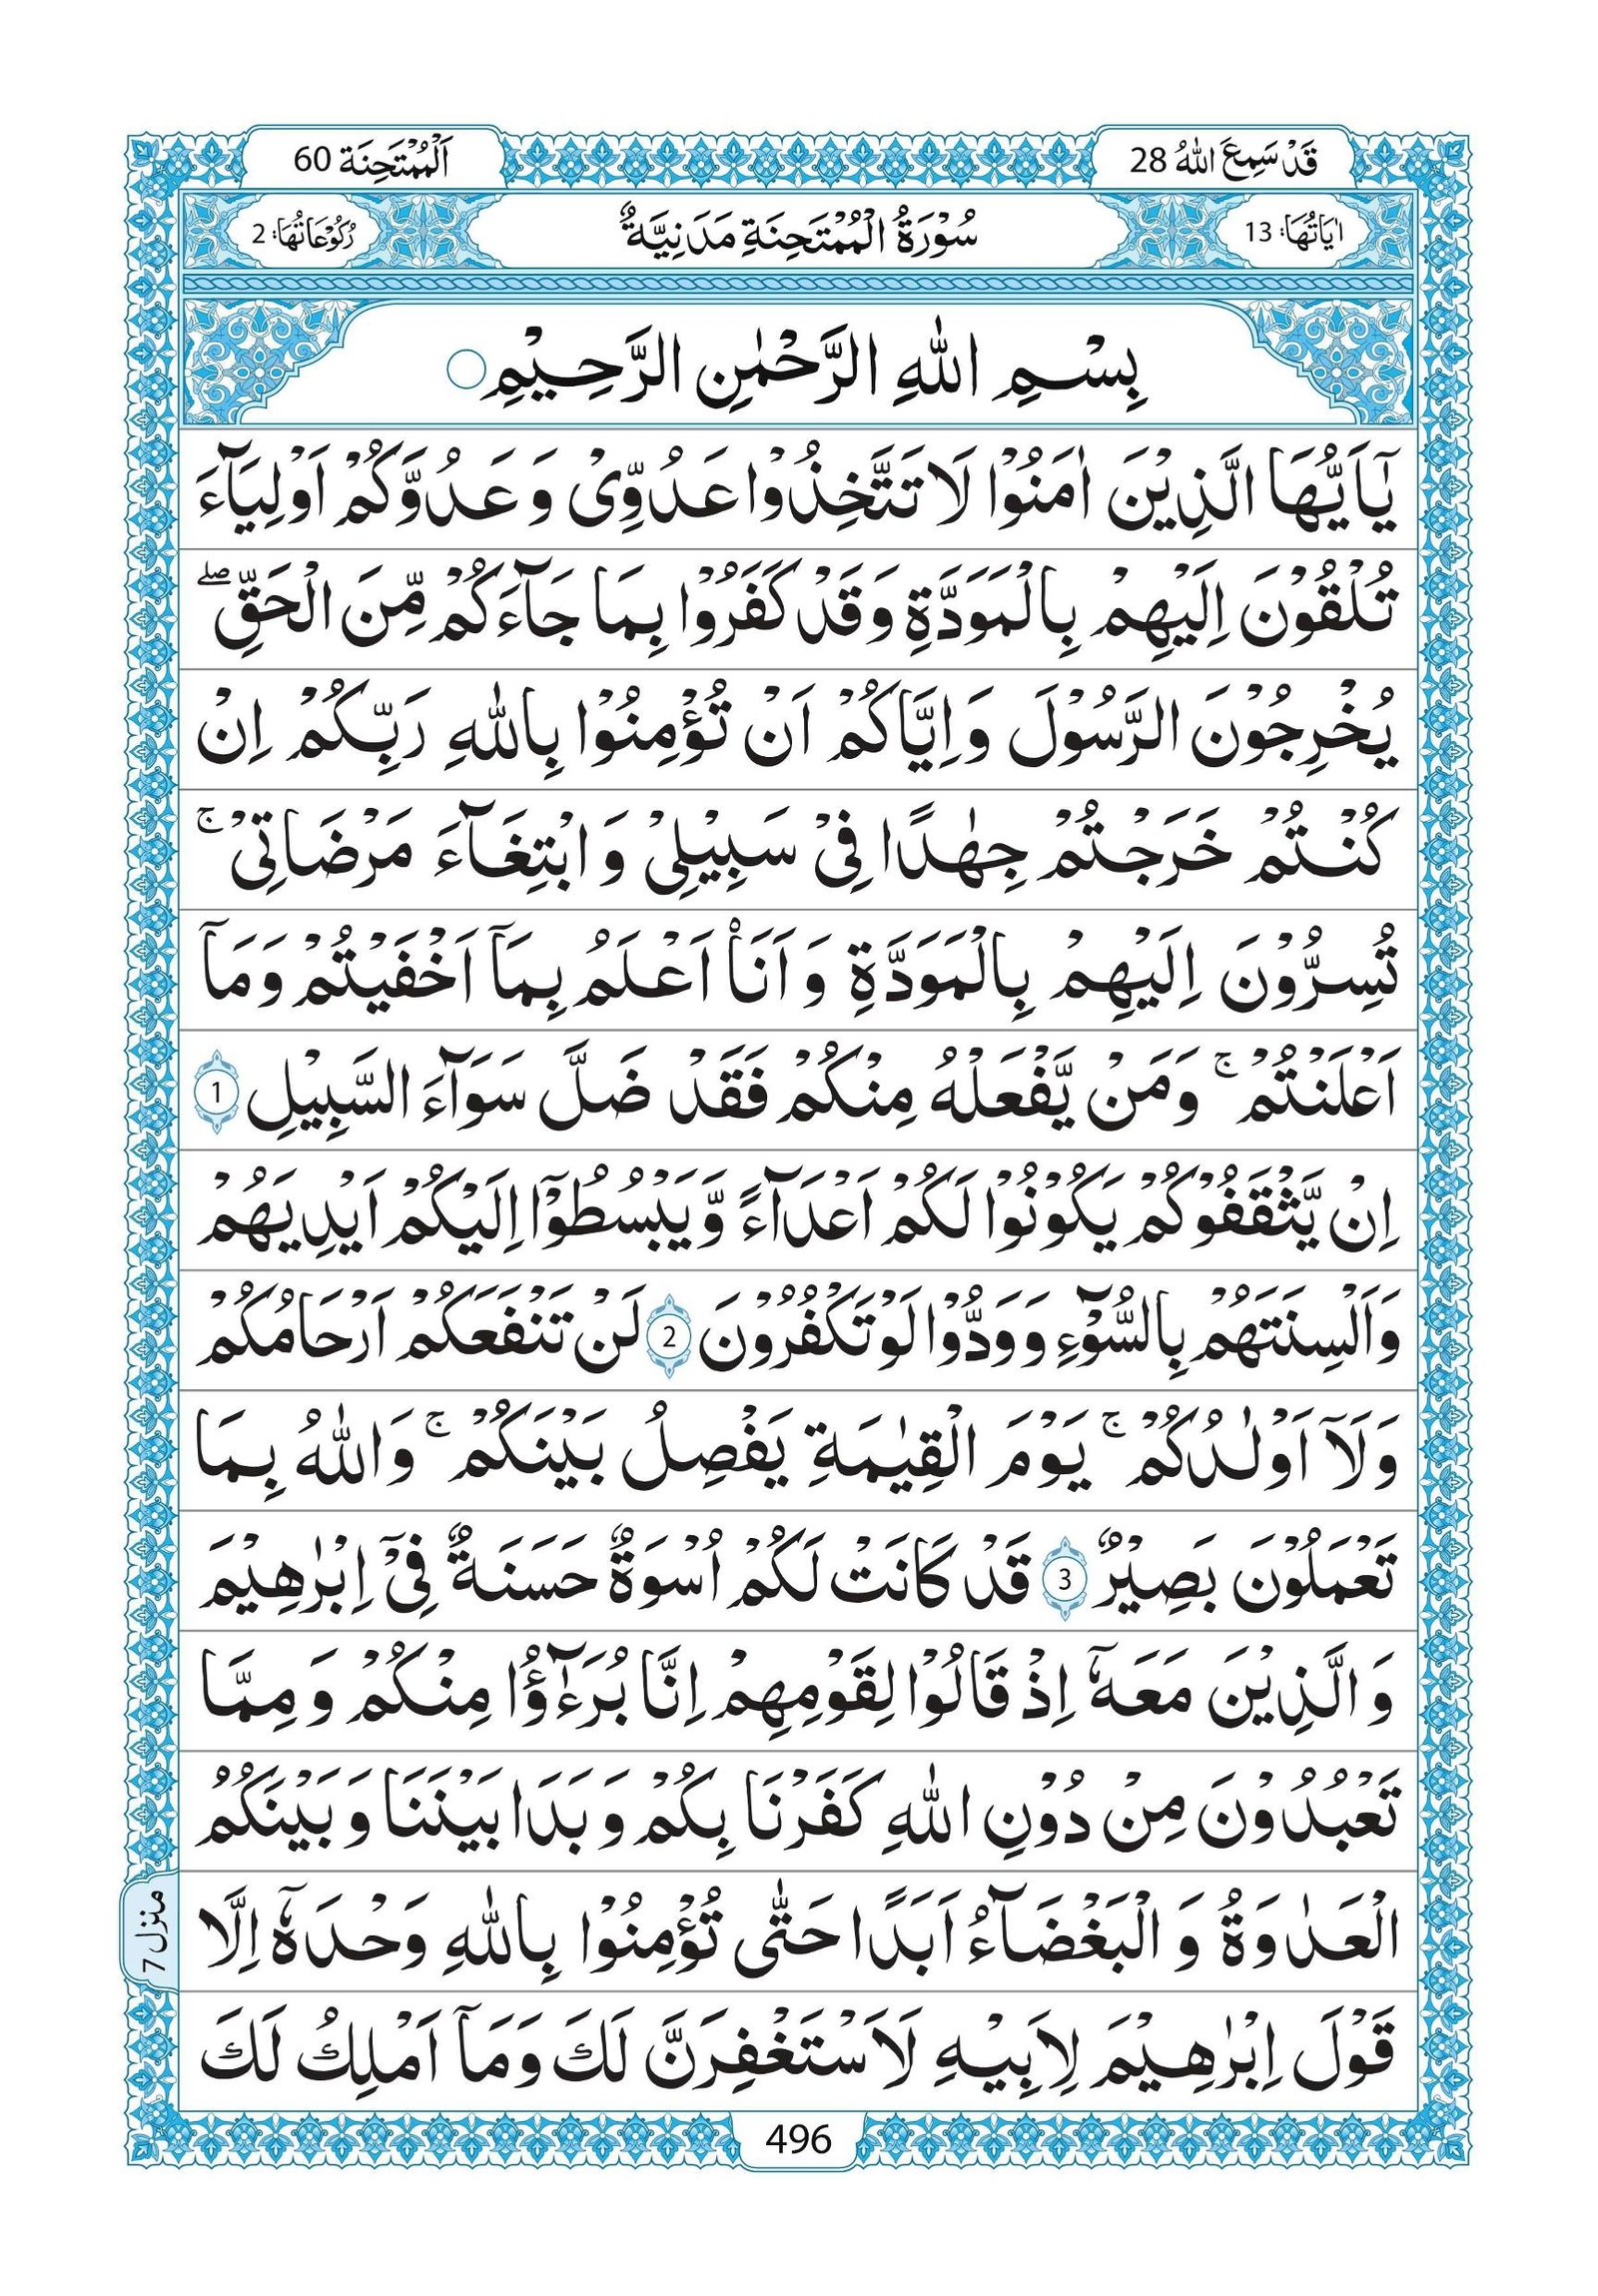 قَدْ سَمِعَ اللهُ 28
اَلْمُمْتَحِنَة 60
اٰيَاتُهَا: 13
سُوْرَةُ الْمُمْتَحِنَةِ مَدَنِيَّةٌ
رُكُوْعَاتُهَا: 2
بِسْمِ اللهِ الرَّحْمٰنِ الرَّحِيْمِ
يٰۤاَيُّهَا الَّذِيْنَ اٰمَنُوْا لَا تَتَّخِذُوْا عَدُوِّيْ وَ عَدُوَّكُمْ اَوْلِيَآءَ
تُلْقُوْنَ اِلَيْهِمْ بِالْمَوَدَّةِ وَقَدْ كَفَرُوْا بِمَا جَآءَكُمْ مِّنَ الْحَقِّ ۖ
يُخْرِجُوْنَ الرَّسُوْلَ وَاِيَّاكُمْ اَنْ تُؤْمِنُوْا بِاللهِ رَبِّكُمْ اِنْ
كُنْتُمْ خَرَجْتُمْ جِهٰدًا فِيْ سَبِيْلِيْ وَ ابْتِغَآءَ مَرْضَاتِيْ ۚ
تُسِرُّوْنَ اِلَيْهِمْ بِالْمَوَدَّةِ وَ اَنَا۠ اَعْلَمُ بِمَاۤ اَخْفَيْتُمْ وَمَاۤ
اَعْلَنْتُمْ ۚ وَمَنْ يَّفْعَلْهُ مِنْكُمْ فَقَدْ ضَلَّ سَوَآءَ السَّبِيْلِ 1
اِنْ يَّثْقَفُوْكُمْ يَكُوْنُوْا لَكُمْ اَعْدَآءً وَّيَبْسُطُوْۤا اِلَيْكُمْ اَيْدِيَهُمْ
وَاَلْسِنَتَهُمْ بِالسُّوْٓءِ وَوَدُّوْا لَوْ تَكْفُرُوْنَ 2 لَنْ تَنْفَعَكُمْ اَرْحَامُكُمْ
وَلَاۤ اَوْلٰدُكُمْ ۚ يَوْمَ الْقِيٰمَةِ يَفْصِلُ بَيْنَكُمْ ۚ وَاللهُ بِمَا
تَعْمَلُوْنَ بَصِيْرٌ 3 قَدْ كَانَتْ لَكُمْ اُسْوَةٌ حَسَنَةٌ فِيْۤ اِبْرٰهِيْمَ
وَ الَّذِيْنَ مَعَهٗۤ اِذْ قَالُوْا لِقَوْمِهِمْ اِنَّا بُرَءٰٓؤُا مِنْكُمْ وَ مِمَّا
تَعْبُدُوْنَ مِنْ دُوْنِ اللهِ كَفَرْنَا بِكُمْ وَ بَدَا بَيْنَنَا وَ بَيْنَكُمُ
الْعَدٰوَةُ وَ الْبَغْضَآءُ اَبَدًا حَتّٰى تُؤْمِنُوْا بِاللهِ وَحْدَهٗۤ اِلَّا
قَوْلَ اِبْرٰهِيْمَ لِاَبِيْهِ لَاَسْتَغْفِرَنَّ لَكَ وَمَاۤ اَمْلِكُ لَكَ
منزل 7
496